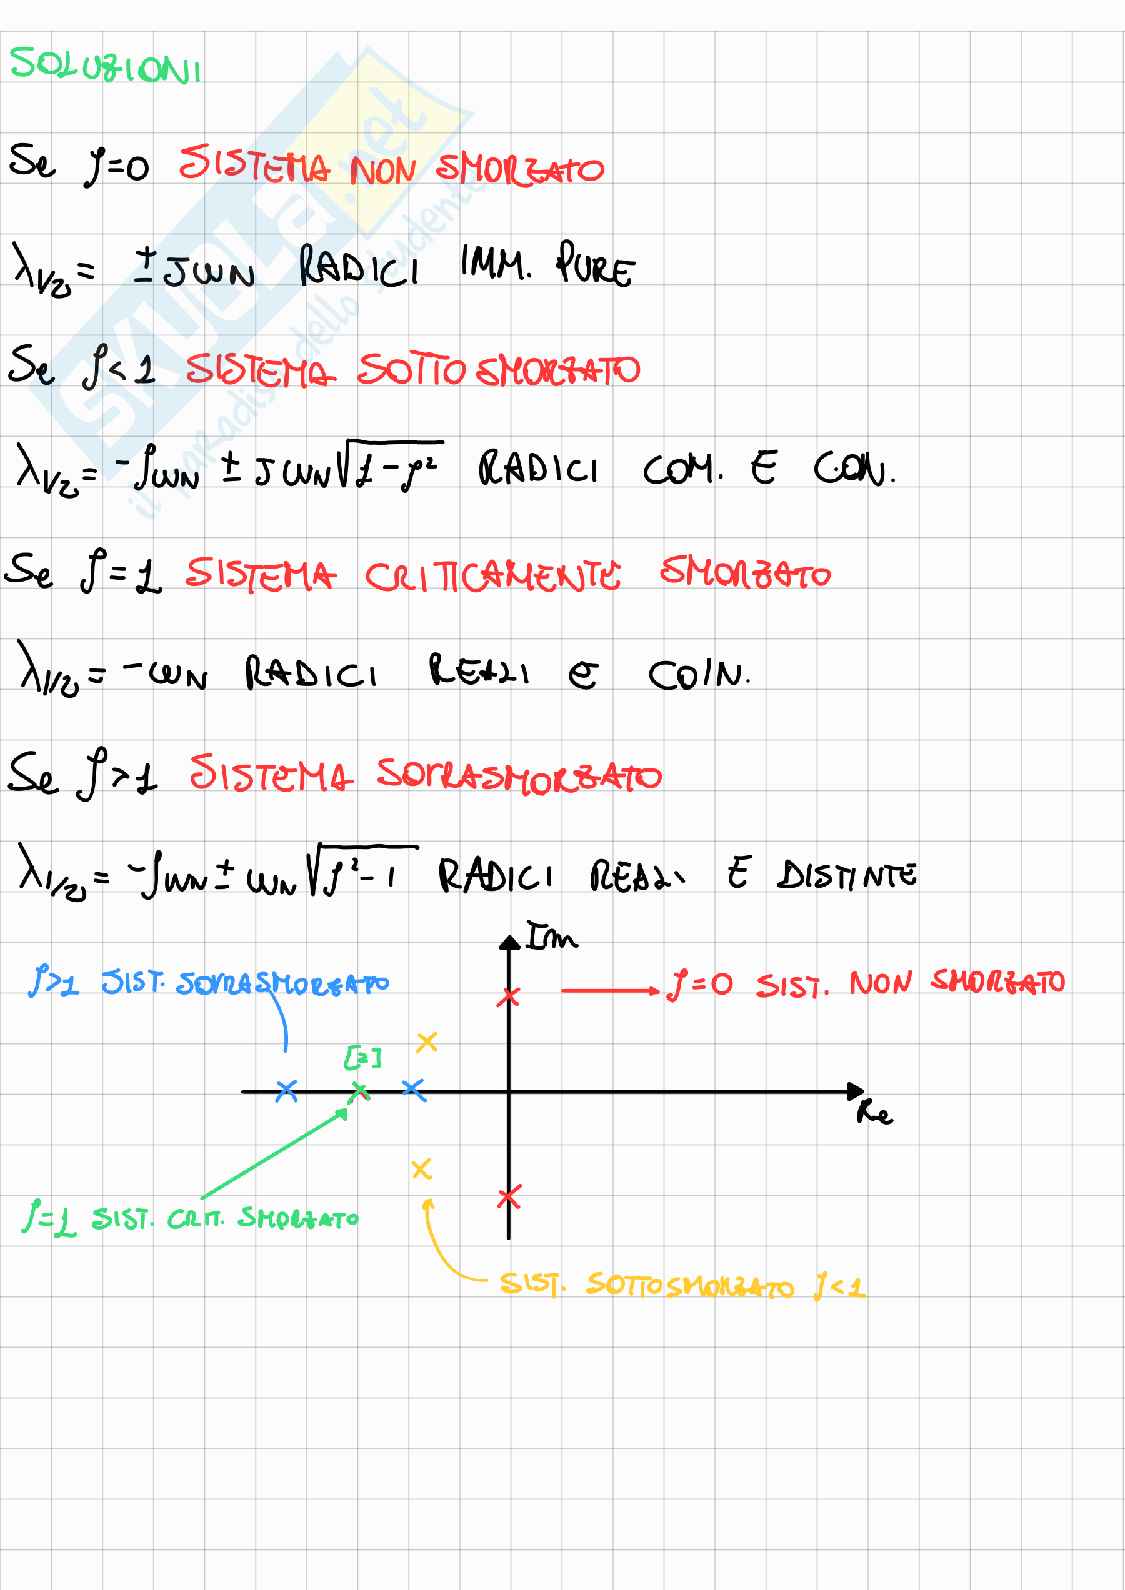 SOLUZIONI
Se ζ=0 SISTEMA NON SMORZATO
λ1/2 = ±JωN RADICI IMM. PURE
Se ζ<1 SISTEMA SOTTOSMORZATO
λ1/2 = -ζωN ± JωN√1-ζ² RADICI COM. E CON.
Se ζ=1 SISTEMA CRITICAMENTE SMORZATO
λ1/2 = -ωN RADICI REALI e COIN.
Se ζ>1 SISTEMA SOPRASMORZATO
λ1/2 = -ζωN ± ωN√ζ²-1 RADICI REALI E DISTINTE
Im
ζ>1 SIST. SOPRASMORZATO
ζ=0 SIST. NON SMORZATO
[2]
Re
ζ=1 SIST. CRIT. SMORZATO
SIST. SOTTOSMORZATO ζ<1
SKUOLA.net
il paradiso dello studente